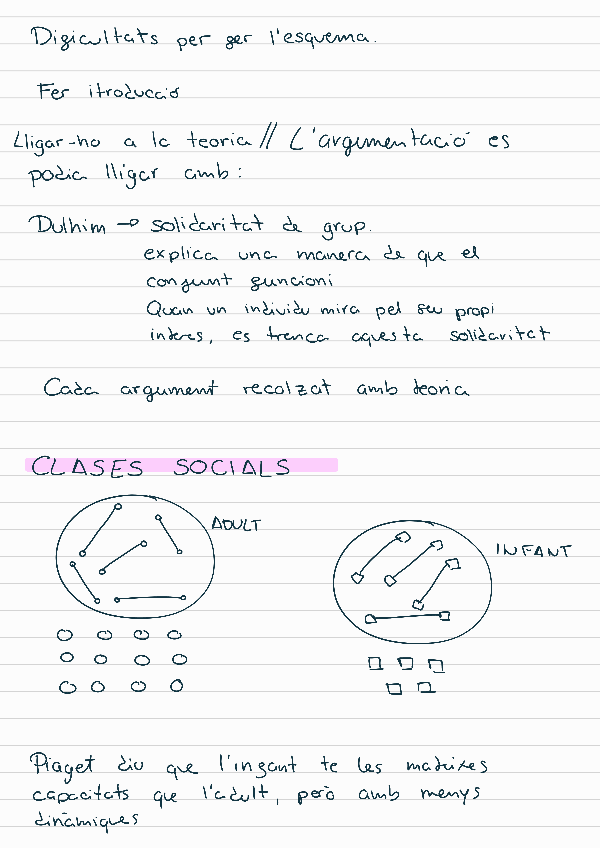 Dificultats per fer l'esquema.
Fer itroducció
Lligar-ho a la teoria // L'argumentació es
podia lligar amb:
Dulhim → solidaritat de grup.
explica una manera de que el
conjunt funcioni
Quan un individu mira pel seu propi
interes, es trenca aquesta solidaritat
Cada argument recolzat amb teoria
CLASES SOCIALS
ADULT
INFANT
Piaget diu que l'infant te les mateixes
capacitats que l'adult, però amb menys
dinàmiques